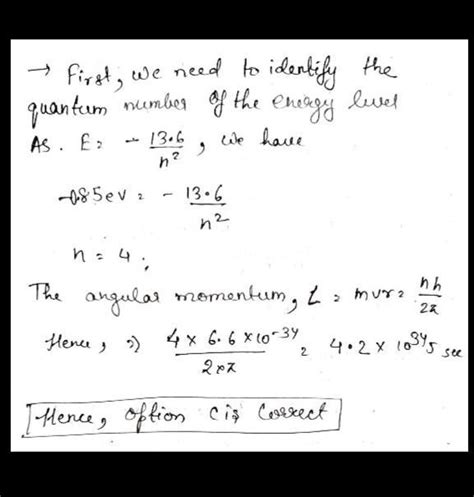 → First, we need to identify the
quantum number of the energy level
As. E = - 13.6/n², we have
-0.85eV = - 13.6/n²
n = 4 ;
The angular momentum, L = mvr = nh/2π
Hence, ⇒ 4 × 6.6 × 10⁻³⁴/2×π = 4.2 × 10³⁴J sec
Hence, option C is Correct